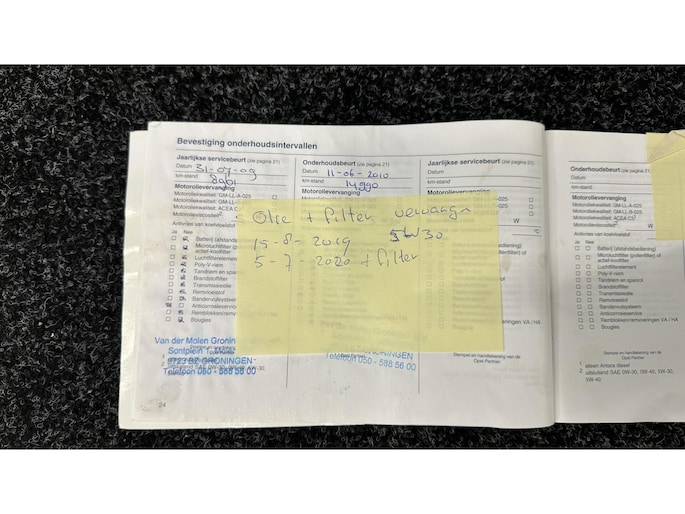 Bevestiging onderhoudsintervallen
Jaarlijkse servicebeurt (zie pagina 21)
Datum 31-07-09
km-stand 8961
Motorolievervanging
Motoroliekwaliteit: GM-LL-A-025
Motoroliekwaliteit: GM-LL-B-025
Motoroliekwaliteit: ACEA C3
Motorolieviscositeit²
Antivries van koelvloeistof
Ja Nee
Batterij (afstandsbediening)
Microluchtfilter (pollenfilter) of
actief-koolfilter
Luchtfilterelement
Poly-V-riem
Tandriem en spanrol
Brandstoffilter
Transmissieolie
Remvloeistof
Bandenvulsysteem
Anticorrosieservice
Remblokken/remvoeringen
Bougies
Van der Molen Groningen
Sontplein 1
9723 BZ GRONINGEN
Telefoon 050 - 588 56 00
24
Onderhoudsbeurt (zie pagina 21)
Datum 11-06-2010
km-stand 14990
Motorolievervanging
Olie + Filter vervangn
15-8-2019 5W30
5-7-2020 + Filter
GRONINGEN
Telefoon 050 - 588 56 00
Jaarlijkse servicebeurt (zie pagina 21)
Datum
km-stand
W
VA / HA
Stempel en handtekening van de
Opel Partner
Onderhoudsbeurt (zie pagina
Datum
km-stand
Motorolievervanging
Motoroliekwaliteit: GM-LL-A-025
Motoroliekwaliteit: GM-LL-B-025
Motoroliekwaliteit: ACEA C3
Motorolieviscositeit² W
Antivries van koelvloeistof tot
Ja Nee
Batterij (afstandsbediening)
Microluchtfilter (pollenfilter) of
actief-koolfilter
Luchtfilterelement
Poly-V-riem
Tandriem en spanrol
Brandstoffilter
Transmissieolie
Remvloeistof
Bandenvulsysteem
Anticorrosieservice
Remblokken/remvoeringen VA / HA
Bougies
Stempel en handtekening van de
Opel Partner
1 alleen Antara diesel
2 uitsluitend SAE 0W-30, 0W-40, 5W-30,
5W-40